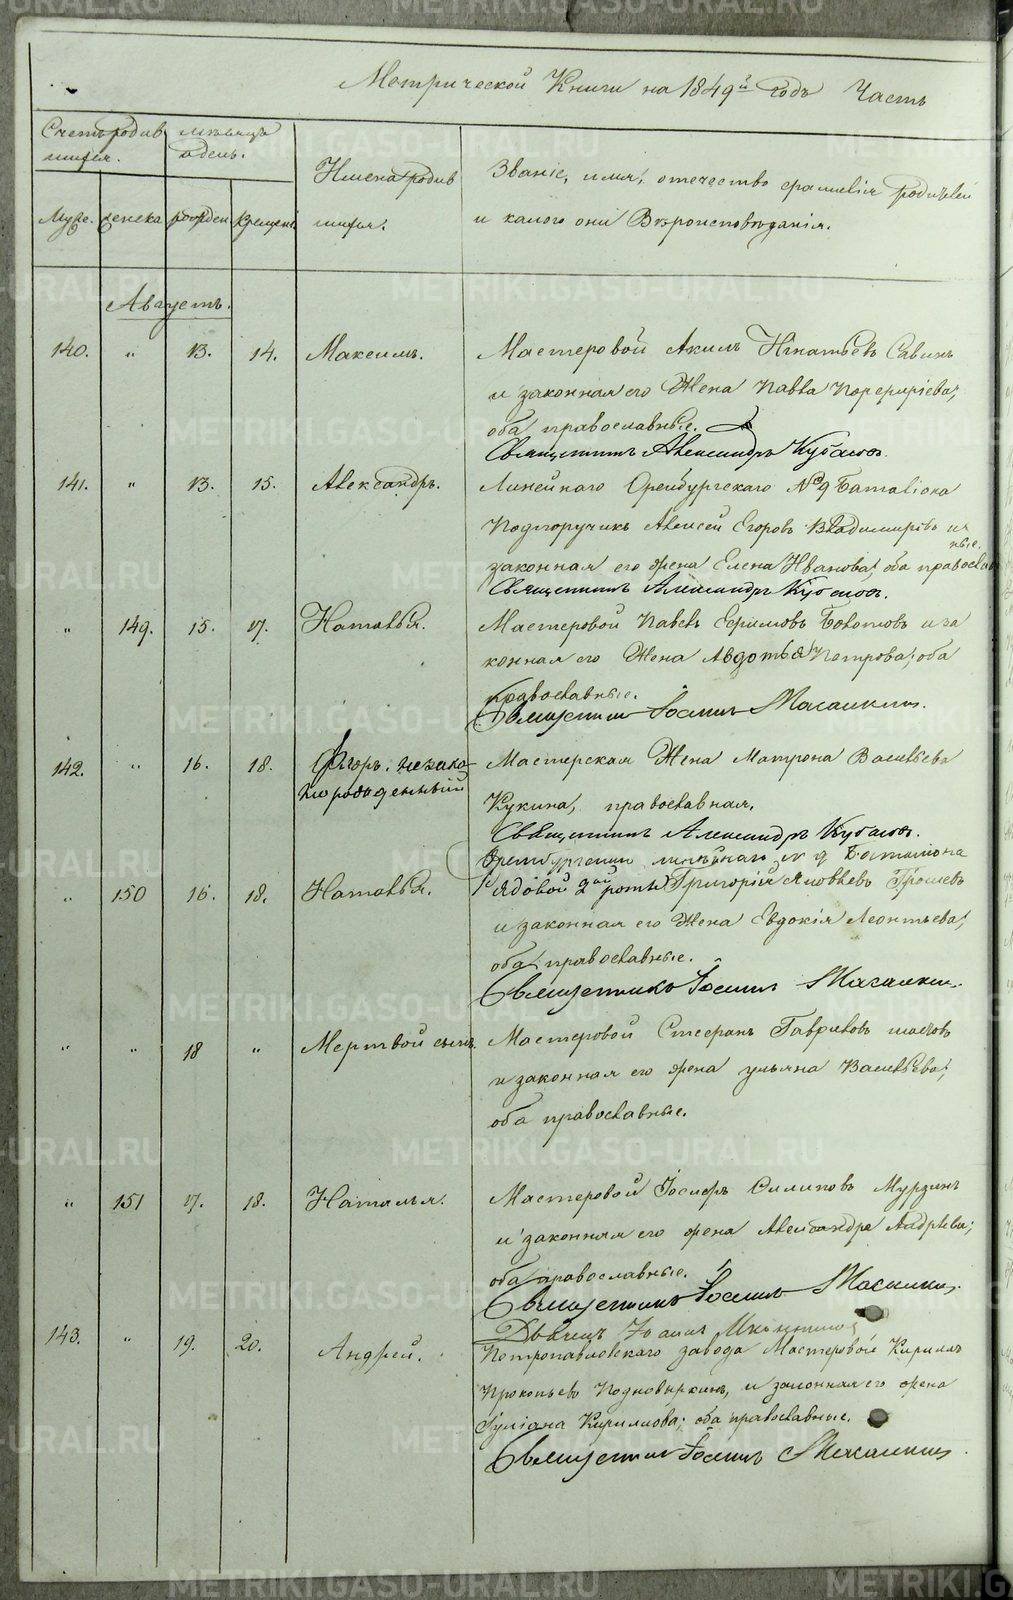 Метрической Книги на 1849й годъ Часть
Счетъ родив месяцъ
шихся. и день.
Имена родив Званіе, имя, отечество фамиліи родителей
Муже. женска рожден крещен. шихся. и какого они Вѣроисповѣданія.
Августъ.
140. „ 13. 14. Максимъ. Мастеровой Акимъ Игнатьевъ Савинъ
и законная его Жена Павла Порфиріева;
оба православные.
Священникъ Александръ Кубасовъ.
141. „ 13. 15. Александръ. Линейнаго Оренбургскаго №9 Баталіона
Подпоручикъ Алексей Егоровъ Владимировъ и
законная его жена Елена Иванова; оба православ
ные.
Священникъ Александръ Кубасовъ.
„ 149. 15. 17. Наталья. Мастеровой Павелъ Ефимовъ и за
конная его Жена Авдотья Петрова; оба
православные.
Священникъ Іоаннъ
142. „ 16. 18. Егоръ. незако- Мастерская Жена Матрона Васильева
но рожденный Кукина, православная.
Священникъ Александръ Кубасовъ.
Оренбургскаго линейнаго № 9 Баталіона
„ 150 16. 18. Наталья. Рядовой 2ой роты Григорій Яковлевъ
и законная его Жена Евдокія Леонтьева;
оба православные.
Священникъ Іоаннъ
„ „ 18 „ Мертвой сынъ. Мастеровой Стефанъ Гавриловъ
и законная его жена Ульяна Васильева;
оба православные.
„ 151 17. 18. Наталья. Мастеровой Іосифъ Филиповъ Мурзинъ
и законная его жена Александра Андрѣева;
оба православные.
Священникъ Іоаннъ
143. „ 19. 20. Андрей. Іоаннъ
Петропавловскаго завода Мастеровой Кирилъ
Прокопьевъ и законная его жена
Іуліана Кирилова; оба православные.
Священникъ Іоаннъ
METRIKI.GASO-URAL.RU